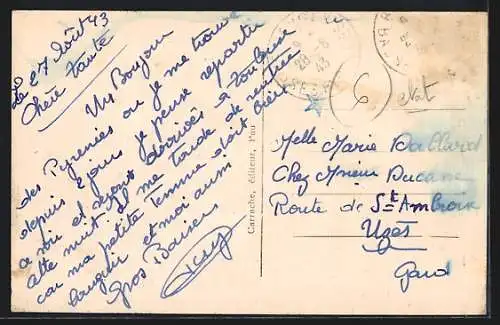 Le 27 Août 43
Chère Tante
Un Bonjour
des Pyrenées ou je me trouve
depuis 2 jours je pense repartir
ce soir et nous arrivés a Toulouse
cette nuit il me tarde de rentrer
car ma petite femme doit bien
languir et moi aussi
Gros Baisers
Carrache, éditeur, Pau
28-8
43
6
Melle Marie
Chez Monsieur Ducane
Route de St Ambroix
Uzès
Gard